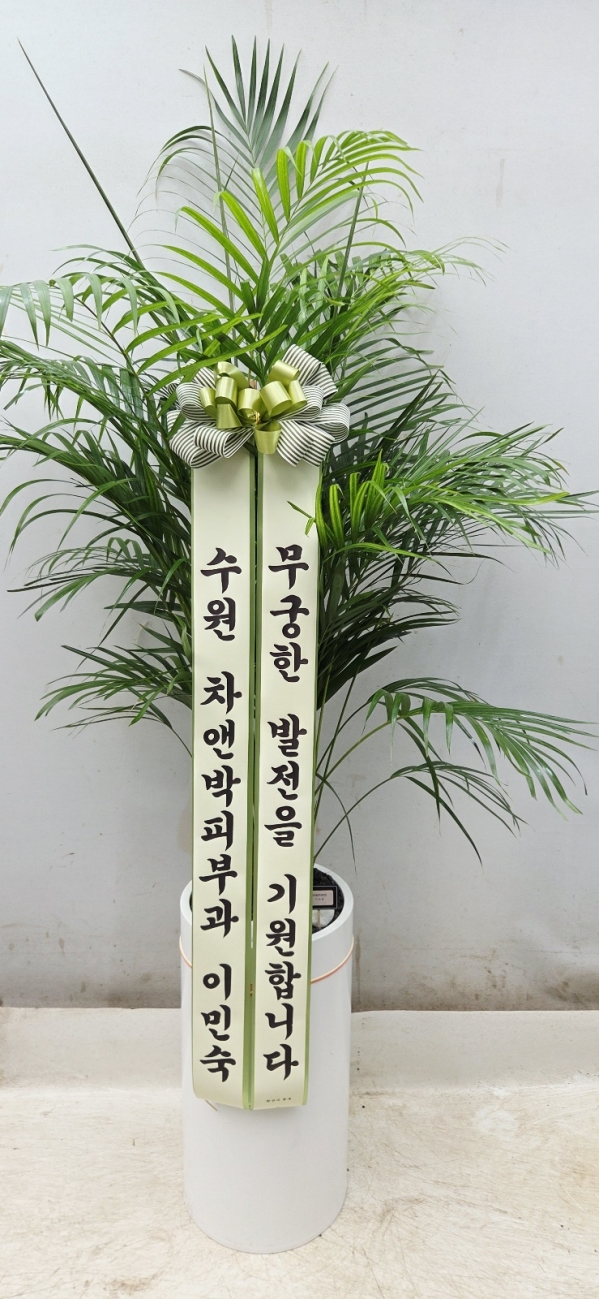 무궁한 발전을 기원합니다
수원 차앤박피부과 이민숙